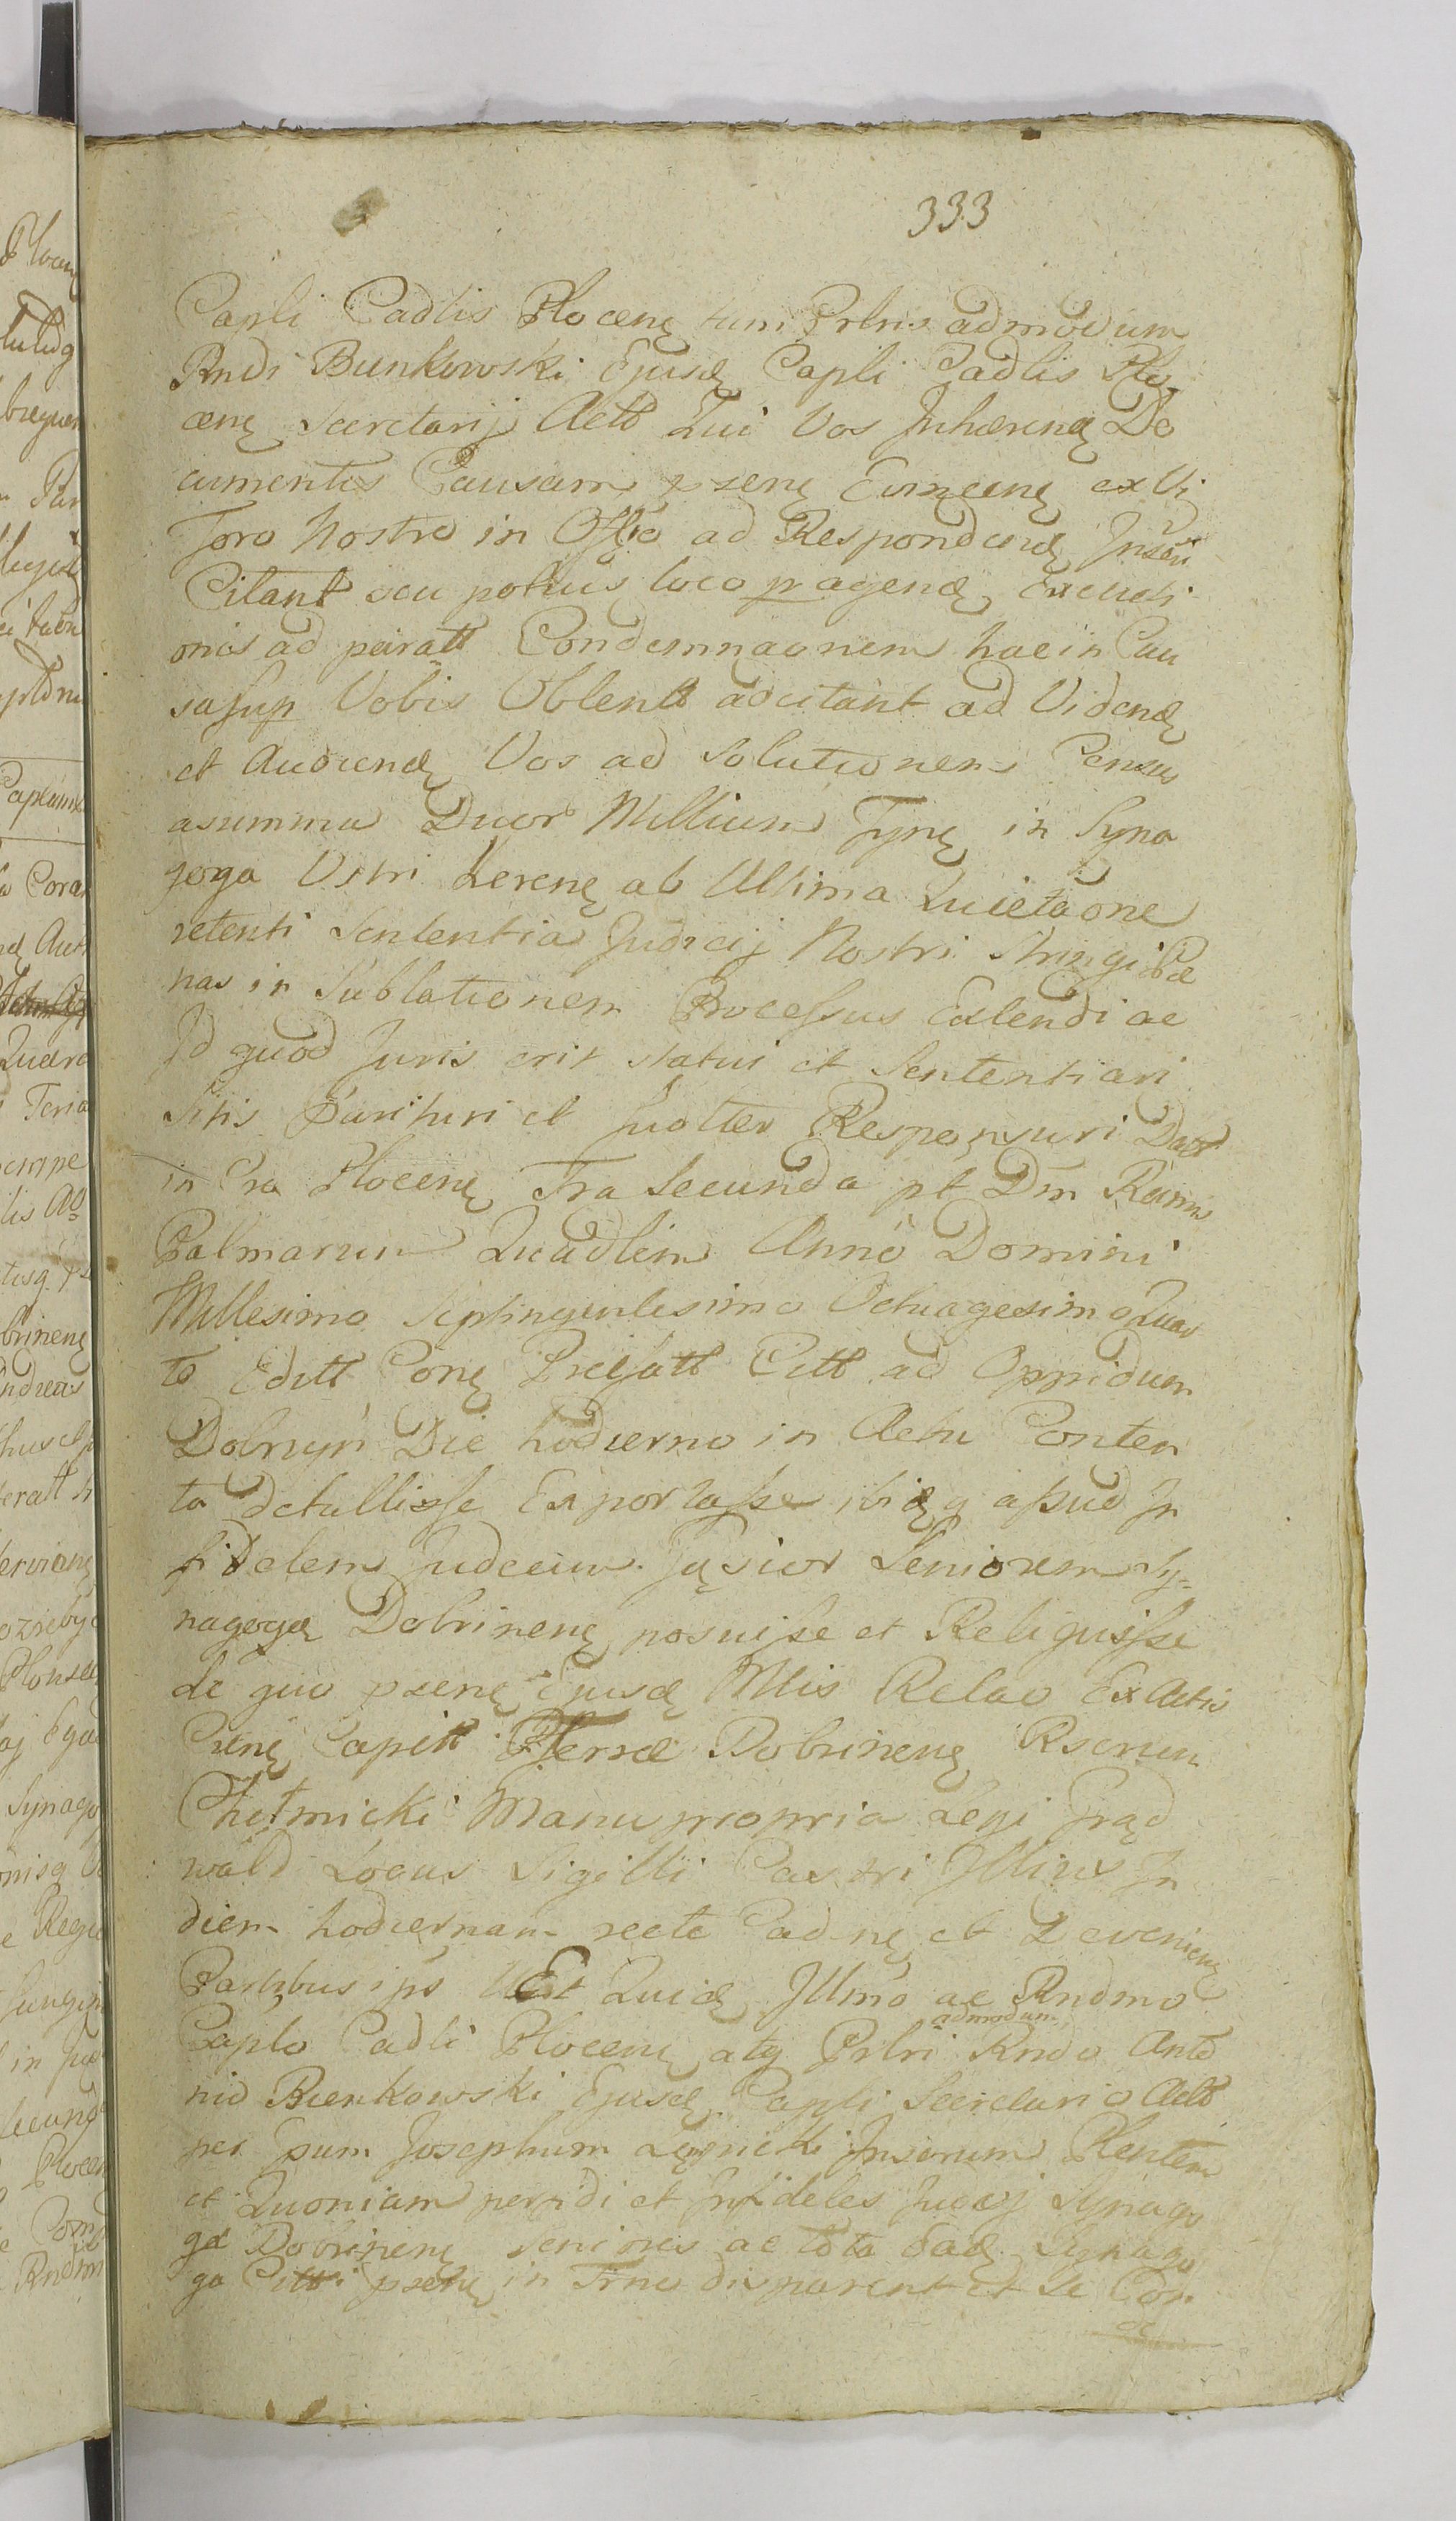 333
Capli Cadlis Plocenę tum Prlris admodum
Rndi Bienkowski Ejusdę Capli Cadlis Plo
cenę Secretarij Actt Qui Vos Inhærendę Do
cumentis Causam pzenę Evincenę ex Vi
Foro Nostro in Offio ad Respondendę Inseri
Citant seu potius loco peragendę Executi
onis ad parratt Condemnaonem hac in Cau
sa sup Vobis Obtentt adcitant ad Videndę
et Audiendę Vos ad Solutionem Census
a summa Duor Millium Fpnę in Syna
goga Vstri Herenę ab Ultima Quietaone
retenti Sententia Judicij Nostri Stringi Pæ
nas in Sublationem Processus Extendi ac
Id quod Juris erit statui et Sententiari
Sitis Parituri et Judtter Responsuri Datt
in Cra Plocenę Fra Secunda pt Dm Ramis
Palmarum Quadlem Anno Domini
Millesimo Septingentesimo Octuagesimo Quar
to Editt Conę Præfatt Citt ad Oppidum
Dobrzyń Die hodierno in Actu Conten
ta detullisse Exportasse ibidę q apud In
fidelem Judæum Jąsior Seniorem Sy=
nagogæ Dobrinenę posuisse et Reliquisse
de quo pzenę Ejusdę Mlis Relao Ex Actis
Crenę Capitt Terræ Dobrinenę Rserum
Chełmicki Manu propria Legi Grąd
wald Locus Sigilli Castri Illius In
diem hodiernam recte Cadnę et Devenienę
Partibus ips Vttt Quidę Illmo ac Rndmo
Caplo Cadli Plocenę atq Prlri admodum Rndo Anto
nio Bienkowski Ejusdę Capli Secretario Actt
per Gsum Josephum Lępicki Jnsorum Plentem
et Quoniam perfidi et Infideles Judæj Synago
gæ Dobrinenę Seniores ac tota Eadę Synago
ga Citti pzenę in Trno disparent et se Con
de